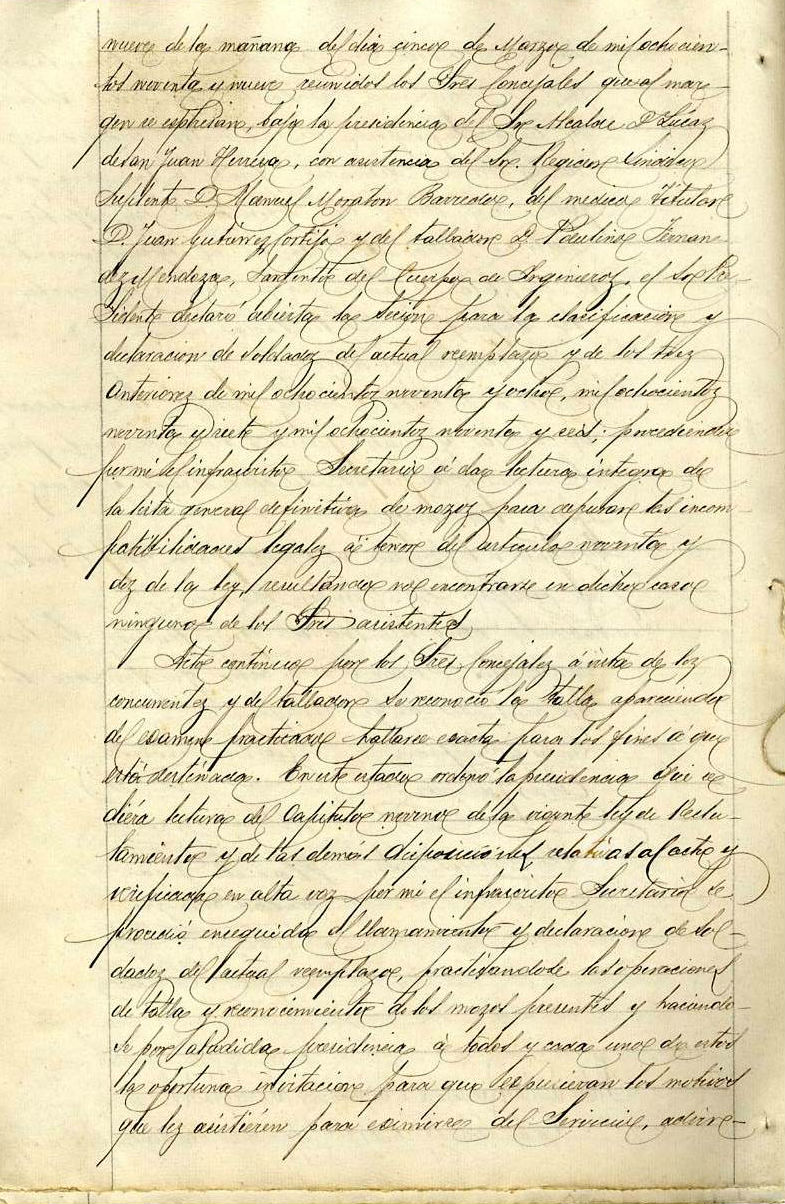 nueve de la mañana del dia cinco de Marzo de mil ochocien-
tos noventa y nueve reunidos los Sres Concejales que al mar-
gen se espresan, bajo la presidencia del Sr Alcalde D Lucaz
de San Juan Herrera, con asistencia del Sr. Regidor Sindico
Suplente D. Manuel Moraton Barredo, del medico Titular
D. Juan Gutierrez Cortijo y del tallador D. Paulino Fernan-
dez Mendoza, Sarjento del Cuerpo de Ingenieroz, el Sr Pre-
sidente declaró abierta la sesion para la clasificacion y
declaracion de soldadoz del actual reemplazo y de los trez
anteriorez de mil ochocientoz noventa y ocho, mil ochocientoz
noventa y siete y mil ochocientoz noventa y seis; procediendo
por mi el infrascrito Secretario á dar lectura integra de
la lista general definitiva de mozoz para depurar las incom-
patibilidades legalez á tenor del articulo noventa y
diz de la ley, resultando no encontrarse en dicho caso
ninguno de los Sres asistentes
Acto continuo por los Sres Concejalez á vista de loz
concurrentez y del tallador se reconoció la talla apareciendo
del examen practicado hallarse exacta para los fines á que
está destinada. En este estado ordenó la presidencia que se
diera lectura del Capitulo noveno de la vigente ley de Reclu-
tamiento y de las demás disposiciones relativas al acto y
verificada en alta voz por mi el infrascrito Secretario se
procedió enseguida al llamamiento y declaracion de sol-
dadoz del actual reemplazo, practicandose las operaciones
de talla y reconocimiento de los mozos presentes y haciendo-
se por la aludida presidencia á todos y cada uno de estos
la oportuna invitacion para que espusieran los motivos
que lez asistieren para eximirse del Servicio, advir-